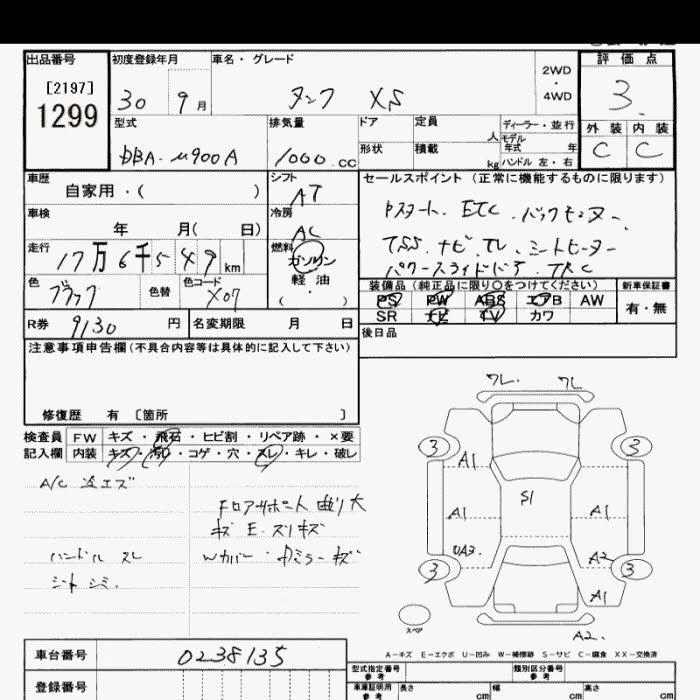 出品番号 初度登録年月 車名・グレード 評価点
[2197]
1299
30 9月 タンク XS 2WD・4WD 3
型式 排気量 ドア 定員 人 ディーラー・並行 外装 内装
DBA-M900A 1000.CC 形状 積載 kg モデル年式 年 ハンドル 左・右 C C
車歴 自家用・( ) シフト AT セールスポイント (正常に機能するものに限ります)
車検 年 月( 日) 冷房 AC Pスタート. ETC. バックモニター
走行 17万6千549km 燃料 ガソリン 軽油 ( ) TSS. ナビ. TV. シートヒーター
パワースライドドア. TRC
色 ブラック 色替 色コード X07 装備品 (純正品に限り○をつけてください) 新車保証書
PS PW ABS エアB AW 有・無
R券 9130 円 名変期限 月 日 SR ナビ TV カワ
注意事項申告欄 (不具合内容等は具体的に記入して下さい) 後日品
修復歴 有 〔箇所 〕
検査員 FW キズ・飛石・ヒビ割・リペア跡・×要
記入欄 内装 キズ・汚レ・コゲ・穴・スレ・キレ・破レ
A/C 冷エズ
Fロアサポート 曲リ大
キズ E. スリキズ
ハンドル スレ
Wカバー・
ミラー キズ
シート シミ.
ワレ. ワレ
3 3
A1
S1
A1 A1
UA3. A2
3 3
A1
スペア
A2.
A-キズ E-エクボ U-凹み W-補修跡 S-サビ C-腐食 XX-交換済
車台番号 0238135
型式指定番号 参考 類別区分番号 参考
登録番号
車庫証明用 参考 長さ cm 幅 cm 高さ cm